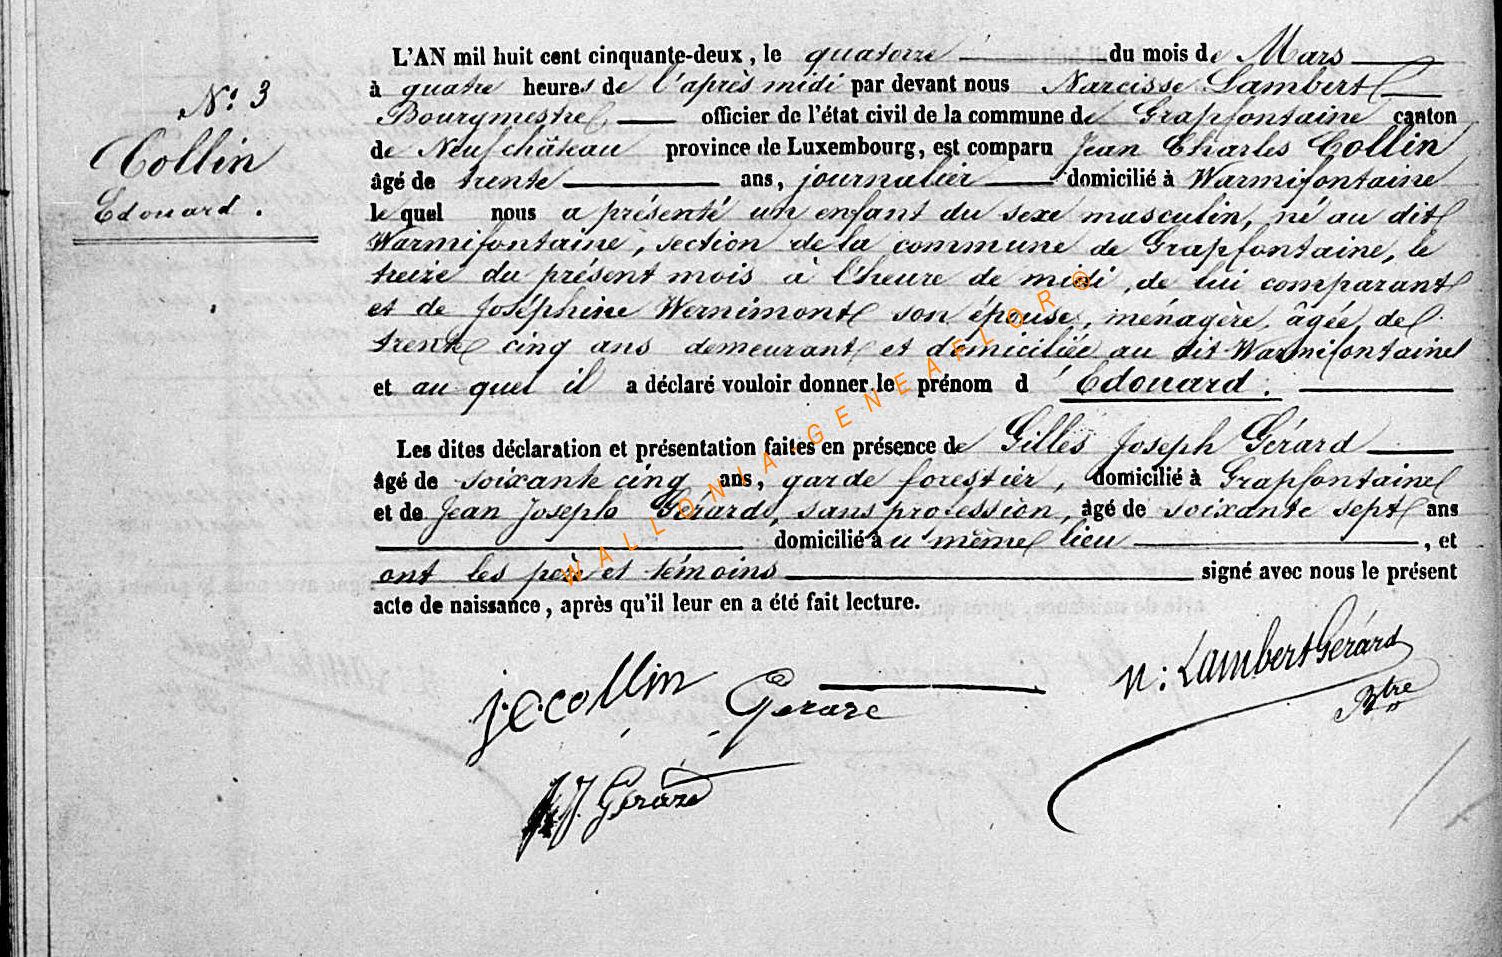 N.º 3
Collin
Edouard.
L'AN mil huit cent cinquante-deux, le quatorze du mois de Mars
à quatre heures de l'après midi par devant nous Narcisse Lambert
Bourgmestre officier de l'état civil de la commune de Grapfontaine canton
de Neufchâteau province de Luxembourg, est comparu Jean Charles Collin
âgé de trente ans, journalier domicilié à Warmifontaine
le quel nous a présenté un enfant du sexe masculin, né au dit
Warmifontaine, section de la commune de Grapfontaine, le
treize du présent mois à l'heure de midi, de lui comparant
et de Joséphine Wernimont son épouse, ménagère, âgée de
trente cinq ans demeurant et domiciliée au dit Warmifontaine
et au quel il a déclaré vouloir donner le prénom d'Edouard.
Les dites déclaration et présentation faites en présence de Gilles Joseph Gérard
âgé de soixante cinq ans, garde forestier, domicilié à Grapfontaine
et de Jean Joseph Gérard, sans profession, âgé de soixante sept ans
domicilié au même lieu, et
ont les père et témoins signé avec nous le présent
acte de naissance, après qu'il leur en a été fait lecture.
j.c collin Gerard N: Lambert Gérard
Btre
J. Gérard
WALLONIA-GENEAFLOR@